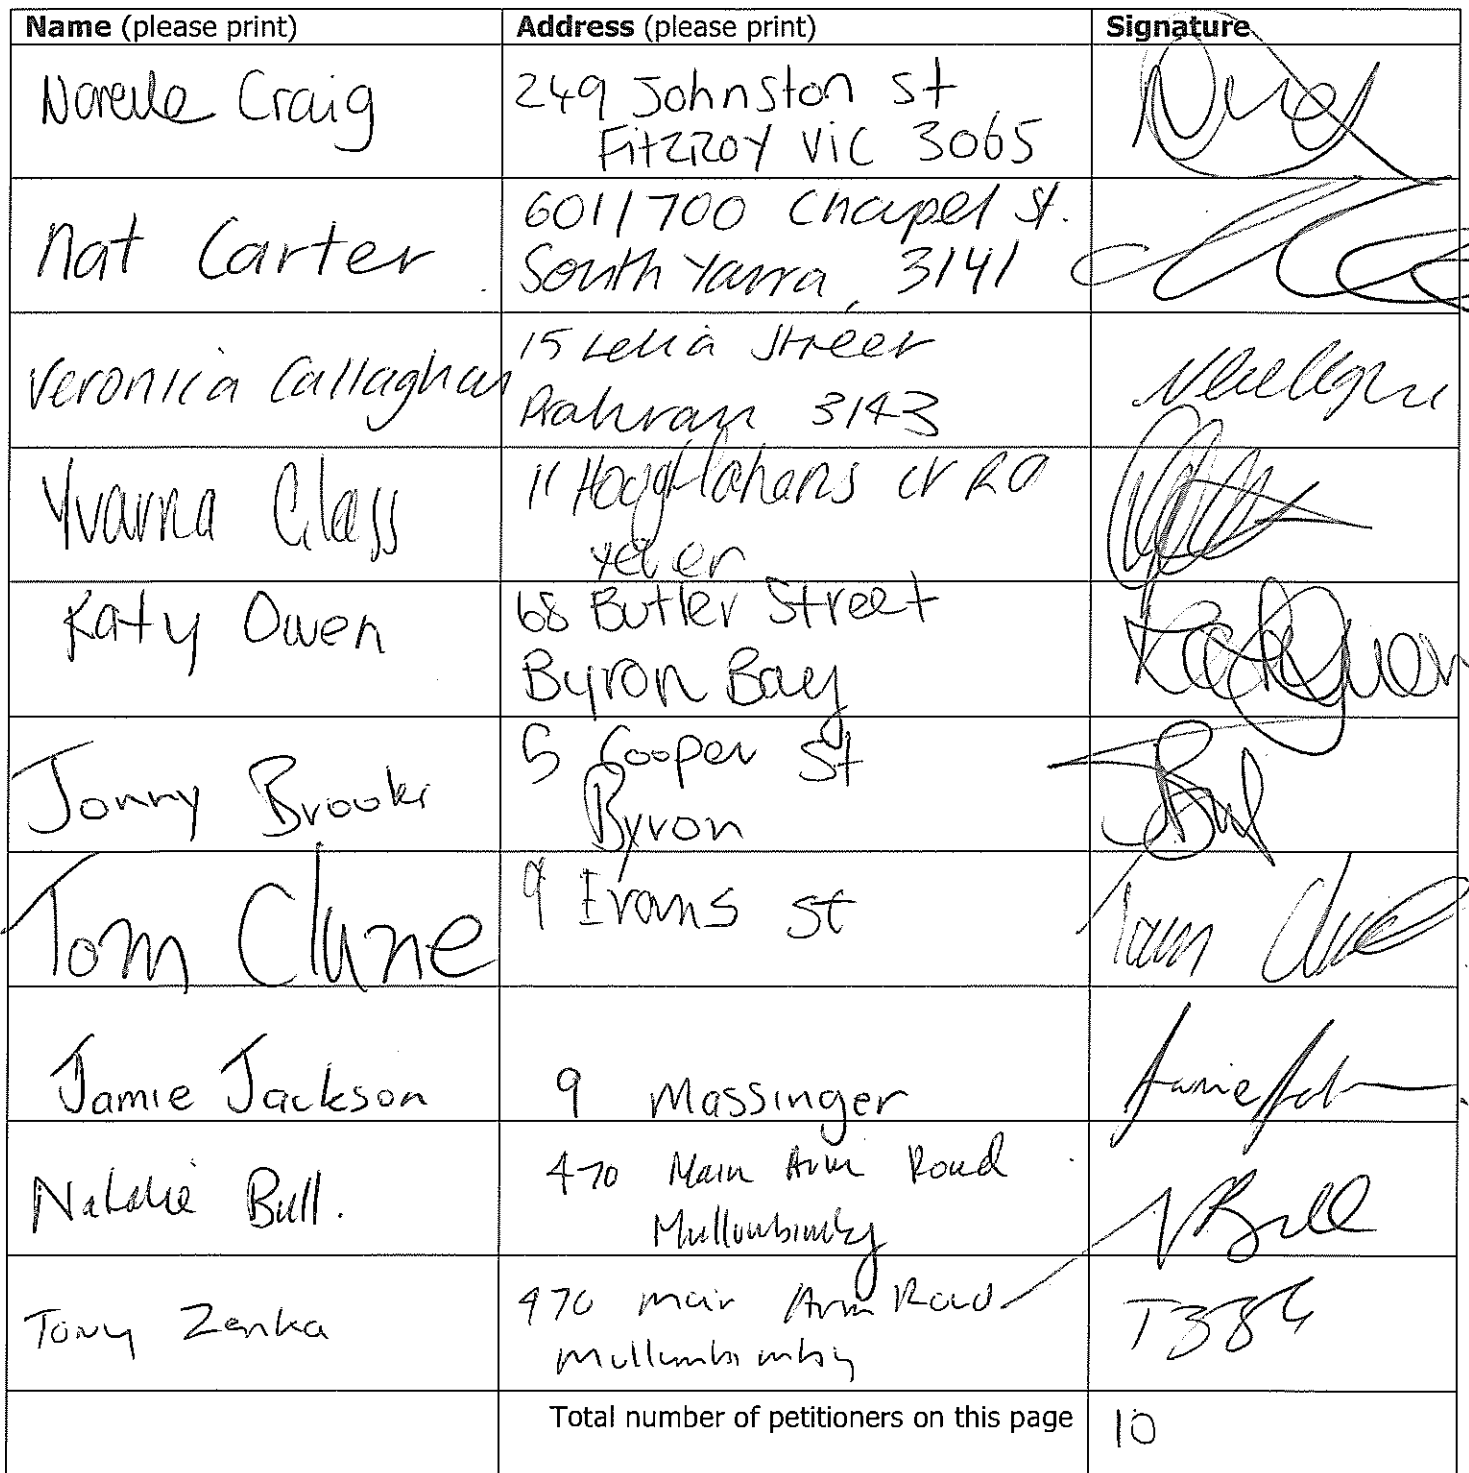 Name (please print) Address (please print) Signature
Norelle Craig 249 Johnston St
Fitzroy VIC 3065
Nat Carter 601/700 Chapel St.
South Yarra, 3141
Veronica Callaghan 15 Lelia Street
Prahran 3143
Yvarna Glass 11 CK RD
Katy Owen 68 Butler Street
Byron Bay
Jonny Brooks 5 Cooper St
Byron
Tom Clune 9 Evans St
Tom Clune
Jamie Jackson 9 Massinger
Natalie Bull. 470 Main Arm Road
Mullumbimby
NBull
Tony Zenka 470 Main Arm Road
Mullumbimby
Total number of petitioners on this page 10